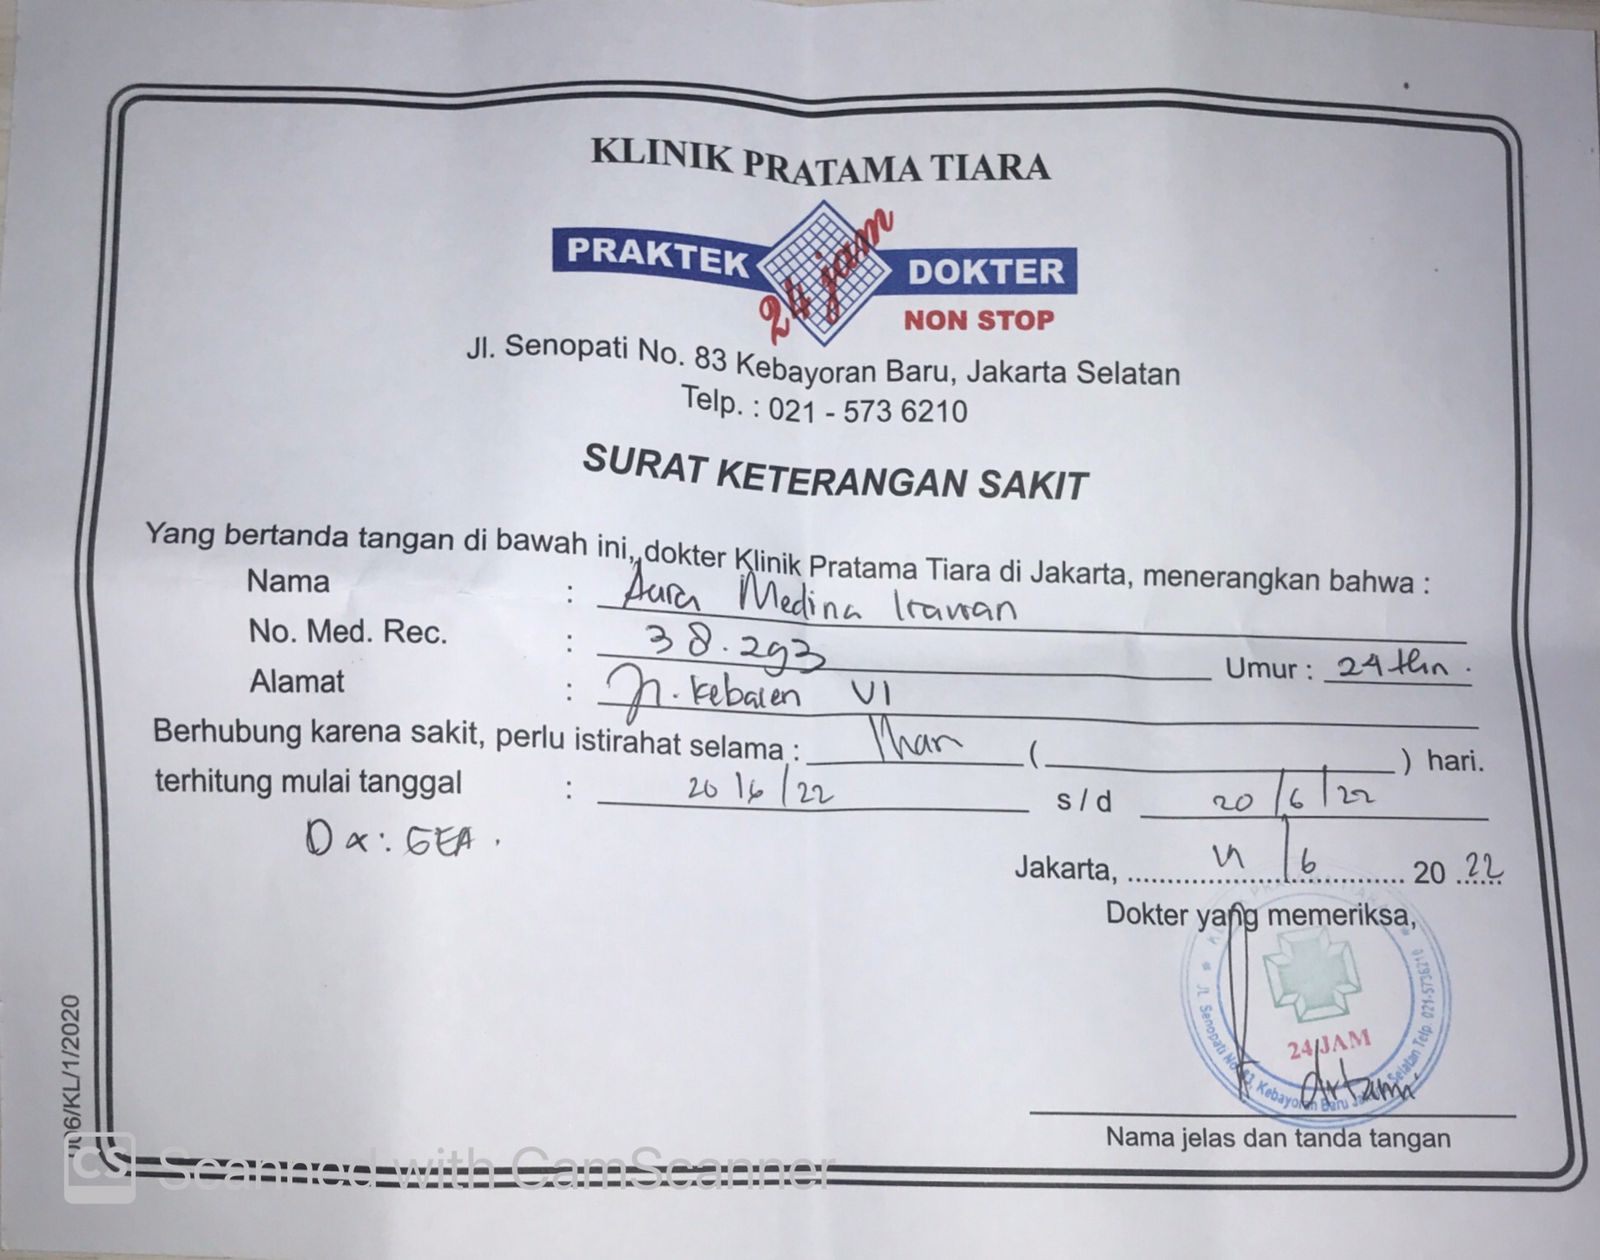 KLINIK PRATAMA TIARA
PRAKTEK 24 jam DOKTER
NON STOP
Jl. Senopati No. 83 Kebayoran Baru, Jakarta Selatan
Telp. : 021 - 573 6210
SURAT KETERANGAN SAKIT
Yang bertanda tangan di bawah ini, dokter Klinik Pratama Tiara di Jakarta, menerangkan bahwa :
Nama : Aura Medina Irawan
No. Med. Rec. : 38.293 Umur : 24 thn.
Alamat : Jl. Kebalen VI
Berhubung karena sakit, perlu istirahat selama : 1 hari ( ) hari.
terhitung mulai tanggal : 20/6/22 s/d 20/6/22
Dx: GEA.
Jakarta, /6 20 22
Dokter yang memeriksa,
24 JAM
Jl. Senopati No. 83, Kebayoran Baru Jakarta Selatan Telp. 021-5736210
Nama jelas dan tanda tangan
006/KL/1/2020
CS Scanned with CamScanner